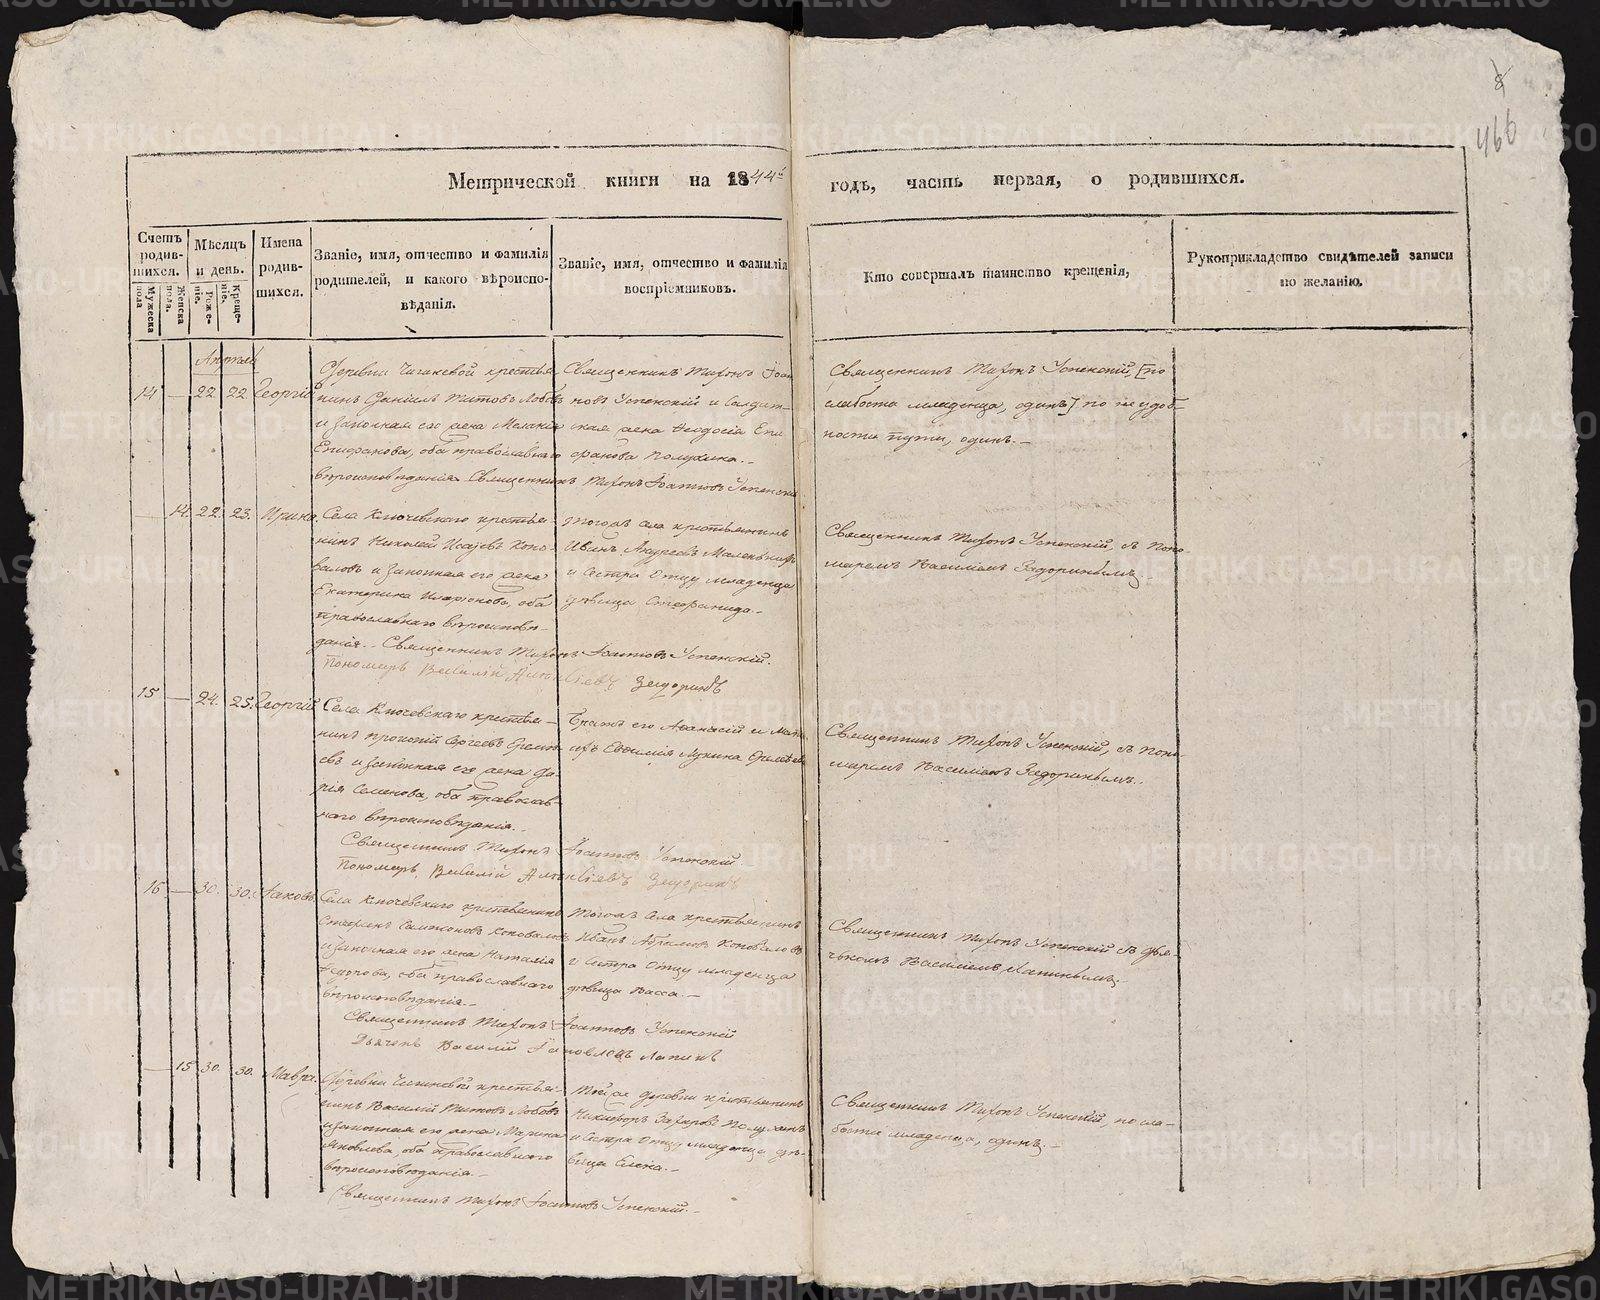 8
466
Метрической книги на 1844й годъ, часть первая, о родившихся.
Счетъ родив-шихся.
Мужеска пола
Женска пола.
Мѣсяцъ и день.
Роже-ніе.
Креще-ніе.
Имена родив-шихся.
Званіе, имя, отчество и фамилія родителей, и какого вѣроиспо-вѣданія.
Званіе, имя, отчество и фамилія воспріемниковъ.
Кто совершалъ таинство крещенія,
Рукоприкладство свидѣтелей записи по желанію.
Апрѣль
14 — 22 22 Георгій
Деревни крестья-
нинъ Даніилъ Титовъ Лобовъ
и законная его жена Меланія
Епифанова, оба православнаго
вѣроисповѣданія. Священникъ Тихонъ Іоанновъ Успенскій
Священникъ Тихонъ Іоан-
новъ Успенскій и Солдат-
ская жена Феодосія Епи-
фанова Полухина. —
Священникъ Тихонъ Успенскій, [по
слабости младенца, одинъ] по неудоб-
ности пути, одинъ. —
— 14. 22. 23. Ирина.
Села Ключевскаго крестья-
нинъ Николай Исаевъ Коно-
валовъ и законная его жена
Екатерина Иларіонова, оба
православнаго вѣроисповѣ-
данія. — Священникъ Тихонъ Іоанновъ Успенскій.
Пономарь Василій Задоринъ
тогожъ села крестьянинъ
Иванъ Андреевъ
и сестра Отцу младенца
дѣвица Стефанида. —
Священникъ Тихонъ Успенскій, съ Поно-
маремъ Василіемъ Задоринымъ
15 — 24. 25. Георгій
Села Ключевскаго крестья-
нинъ Прокопій Сергеевъ
и законная его жена Да-
рія Семенова, оба православ-
наго вѣроисповѣданія. —
Священникъ Тихонъ Іоанновъ Успенскій
Пономарь Василій Задоринъ
Братъ его Аѳанасій и
Евдокія Лукина
Священникъ Тихонъ Успенскій, съ Поно-
маремъ Василіемъ Задоринымъ.
16 — 30. 30. Іаковъ.
Села Ключевскаго крестьянинъ
Стефанъ Самсоновъ Коноваловъ
и законная его жена Наталія
Федорова, оба православнаго
вѣроисповѣданія. —
Священникъ Тихонъ Іоанновъ Успенскій
Дьячекъ Василій Лапинъ
Тогожъ села крестьянинъ
Иванъ Абрамовъ Коноваловъ
и сестра Отцу младенца
дѣвица Васса. —
Священникъ Тихонъ Успенскій съ Дья-
чкомъ Василіемъ Лапинымъ
— 15 30. 30. Мавра.
Деревни крестья-
нинъ Василій Титовъ Лобовъ
и законная его жена Марина
Яковлева, оба православнаго
вѣроисповѣданія. —
Священникъ Тихонъ Іоанновъ Успенскій. —
Тойже деревни крестьянинъ
Никифоръ Захаровъ Полухинъ
и сестра Отцу младенца дѣ-
вица Елена. —
Священникъ Тихонъ Успенскій, по сла-
бости младенца, одинъ. —
METRIKI.GASO-URAL.RU